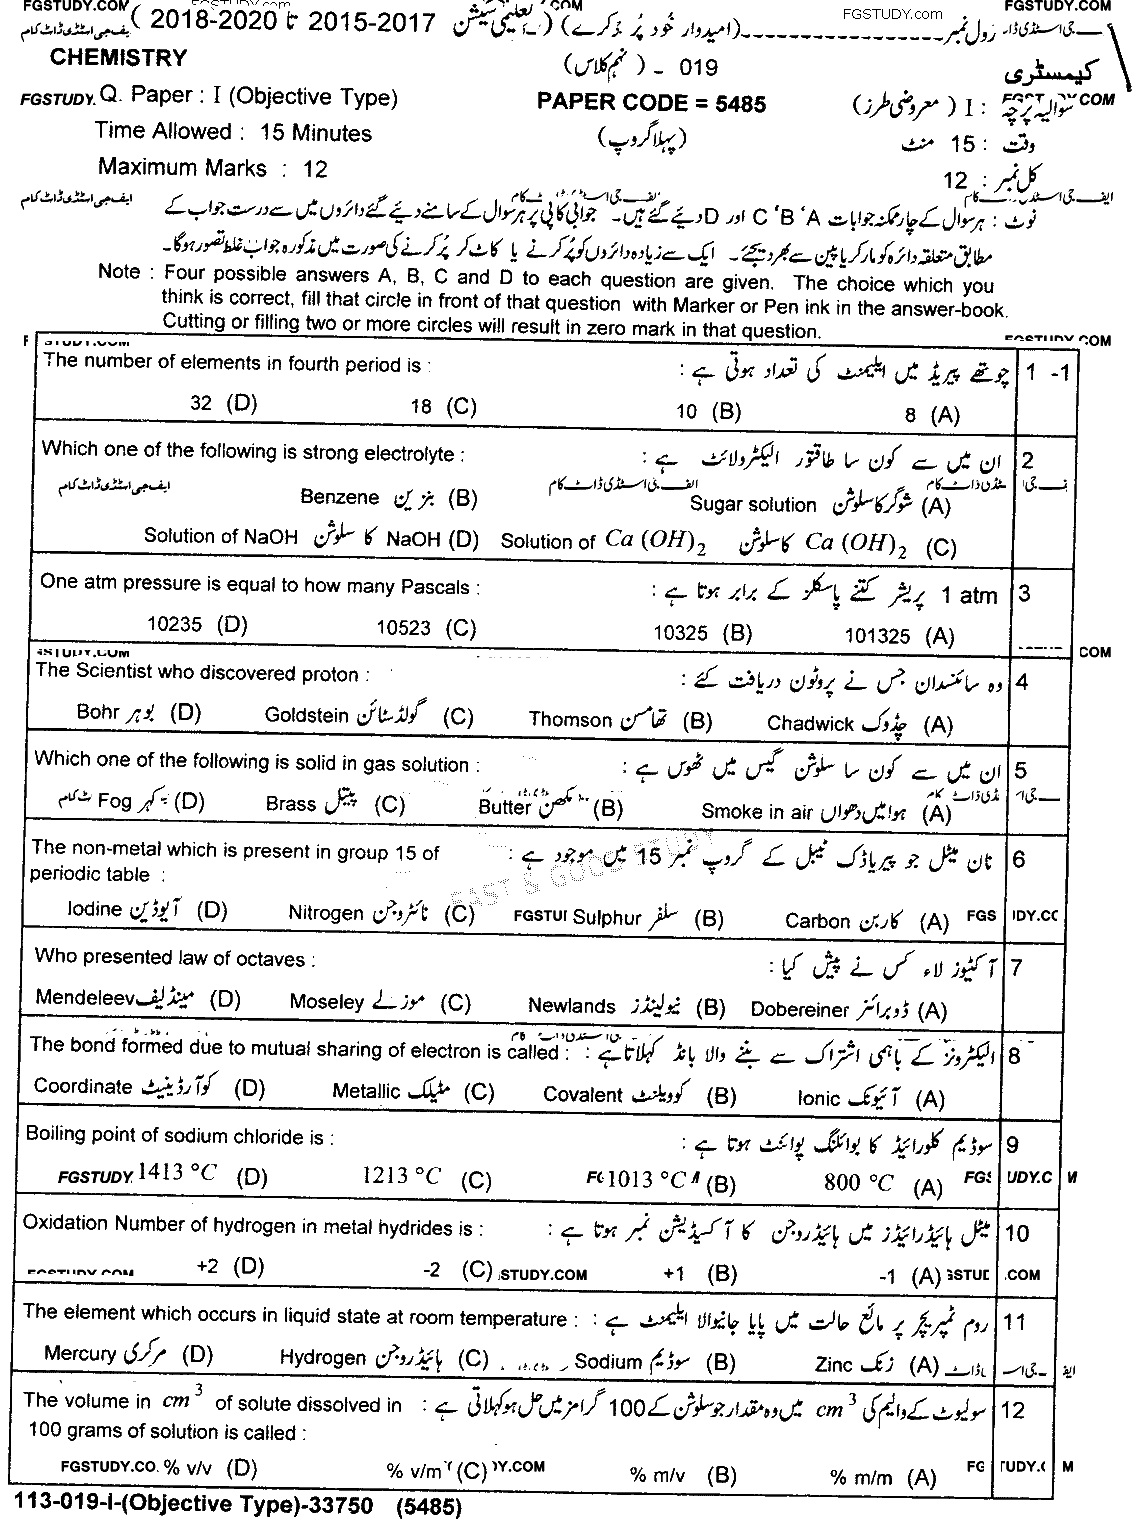 FGSTUDY.COM COM FGSTUDY.com FGSTUDY.COM
رول نمبر (امیدوار خود پُر کرے) (تعلیمی سیشن 2015-2017 تا 2018-2020)
CHEMISTRY 019 - (نہم کلاس) کیمسٹری
FGSTUDY. Q. Paper : I (Objective Type) PAPER CODE = 5485 سوالیہ پرچہ : I (معروضی طرز)
Time Allowed : 15 Minutes (پہلا گروپ) وقت : 15 منٹ
Maximum Marks : 12 کل نمبر : 12
نوٹ : ہر سوال کے چار ممکنہ جوابات A، B، C اور D دیے گئے ہیں۔ جوابی کاپی پر ہر سوال کے سامنے دیے گئے دائروں میں سے درست جواب کے
مطابق متعلقہ دائرہ کو مارکر یا پین سے بھر دیجئے۔ ایک سے زیادہ دائروں کو پُر کرنے یا کاٹ کر پُر کرنے کی صورت میں مذکورہ جواب غلط تصور ہوگا۔
Note : Four possible answers A, B, C and D to each question are given. The choice which you
think is correct, fill that circle in front of that question with Marker or Pen ink in the answer-book.
Cutting or filling two or more circles will result in zero mark in that question.
The number of elements in fourth period is : چوتھے پیریڈ میں ایلیمنٹ کی تعداد ہوتی ہے : 1 -1
32 (D) 18 (C) 10 (B) 8 (A)
Which one of the following is strong electrolyte : ان میں سے کون سا طاقتور الیکٹرولائٹ ہے : 2
Benzene بنزین (B) Sugar solution شوگر کا سلوشن (A)
Solution of NaOH کا سلوشن NaOH (D) Solution of Ca (OH)₂ کا سلوشن Ca (OH)₂ (C)
One atm pressure is equal to how many Pascals : 1 atm پریشر کتنے پاسکلز کے برابر ہوتا ہے : 3
10235 (D) 10523 (C) 10325 (B) 101325 (A)
The Scientist who discovered proton : وہ سائنسدان جس نے پروٹون دریافت کئے : 4
Bohr بوہر (D) Goldstein گولڈسٹائن (C) Thomson تھامسن (B) Chadwick چڈوک (A)
Which one of the following is solid in gas solution : ان میں سے کون سا سلوشن گیس میں ٹھوس ہے : 5
Fog کہر (D) Brass پیتل (C) Butter مکھن (B) Smoke in air ہوا میں دھواں (A)
The non-metal which is present in group 15 of نان میٹل جو پیریاڈک ٹیبل کے گروپ نمبر 15 میں موجود ہے : 6
periodic table :
FAST & GOOD STUDY
Iodine آیوڈین (D) Nitrogen نائٹروجن (C) Sulphur سلفر (B) Carbon کاربن (A)
Who presented law of octaves : آکٹیوز لاء کس نے پیش کیا : 7
Mendeleev مینڈلیف (D) Moseley موزلے (C) Newlands نیولینڈز (B) Dobereiner ڈوبرائنر (A)
The bond formed due to mutual sharing of electron is called : الیکٹرونز کے باہمی اشتراک سے بننے والا بانڈ کہلاتا ہے : 8
Coordinate کوآرڈینیٹ (D) Metallic مٹیلک (C) Covalent کوویلنٹ (B) Ionic آئیونک (A)
Boiling point of sodium chloride is : سوڈیم کلورائیڈ کا بوائلنگ پوائنٹ ہوتا ہے : 9
FGSTUDY. 1413 °C (D) 1213 °C (C) 1013 °C (B) 800 °C (A)
Oxidation Number of hydrogen in metal hydrides is : میٹل ہائیڈرائیڈز میں ہائیڈروجن کا آکسیڈیشن نمبر ہوتا ہے : 10
+2 (D) -2 (C) +1 (B) -1 (A)
The element which occurs in liquid state at room temperature : روم ٹمپریچر پر مائع حالت میں پایا جانیوالا ایلیمنٹ ہے : 11
Mercury مرکری (D) Hydrogen ہائیڈروجن (C) Sodium سوڈیم (B) Zinc زنک (A)
The volume in cm³ of solute dissolved in سولیوٹ کے والیم کی cm³ میں وہ مقدار جو سلوشن کے 100 گرامز میں حل ہو کہلاتی ہے : 12
100 grams of solution is called :
FGSTUDY.CO. % v/v (D) % v/m (C) % m/v (B) % m/m (A)
113-019-I-(Objective Type)-33750 (5485)